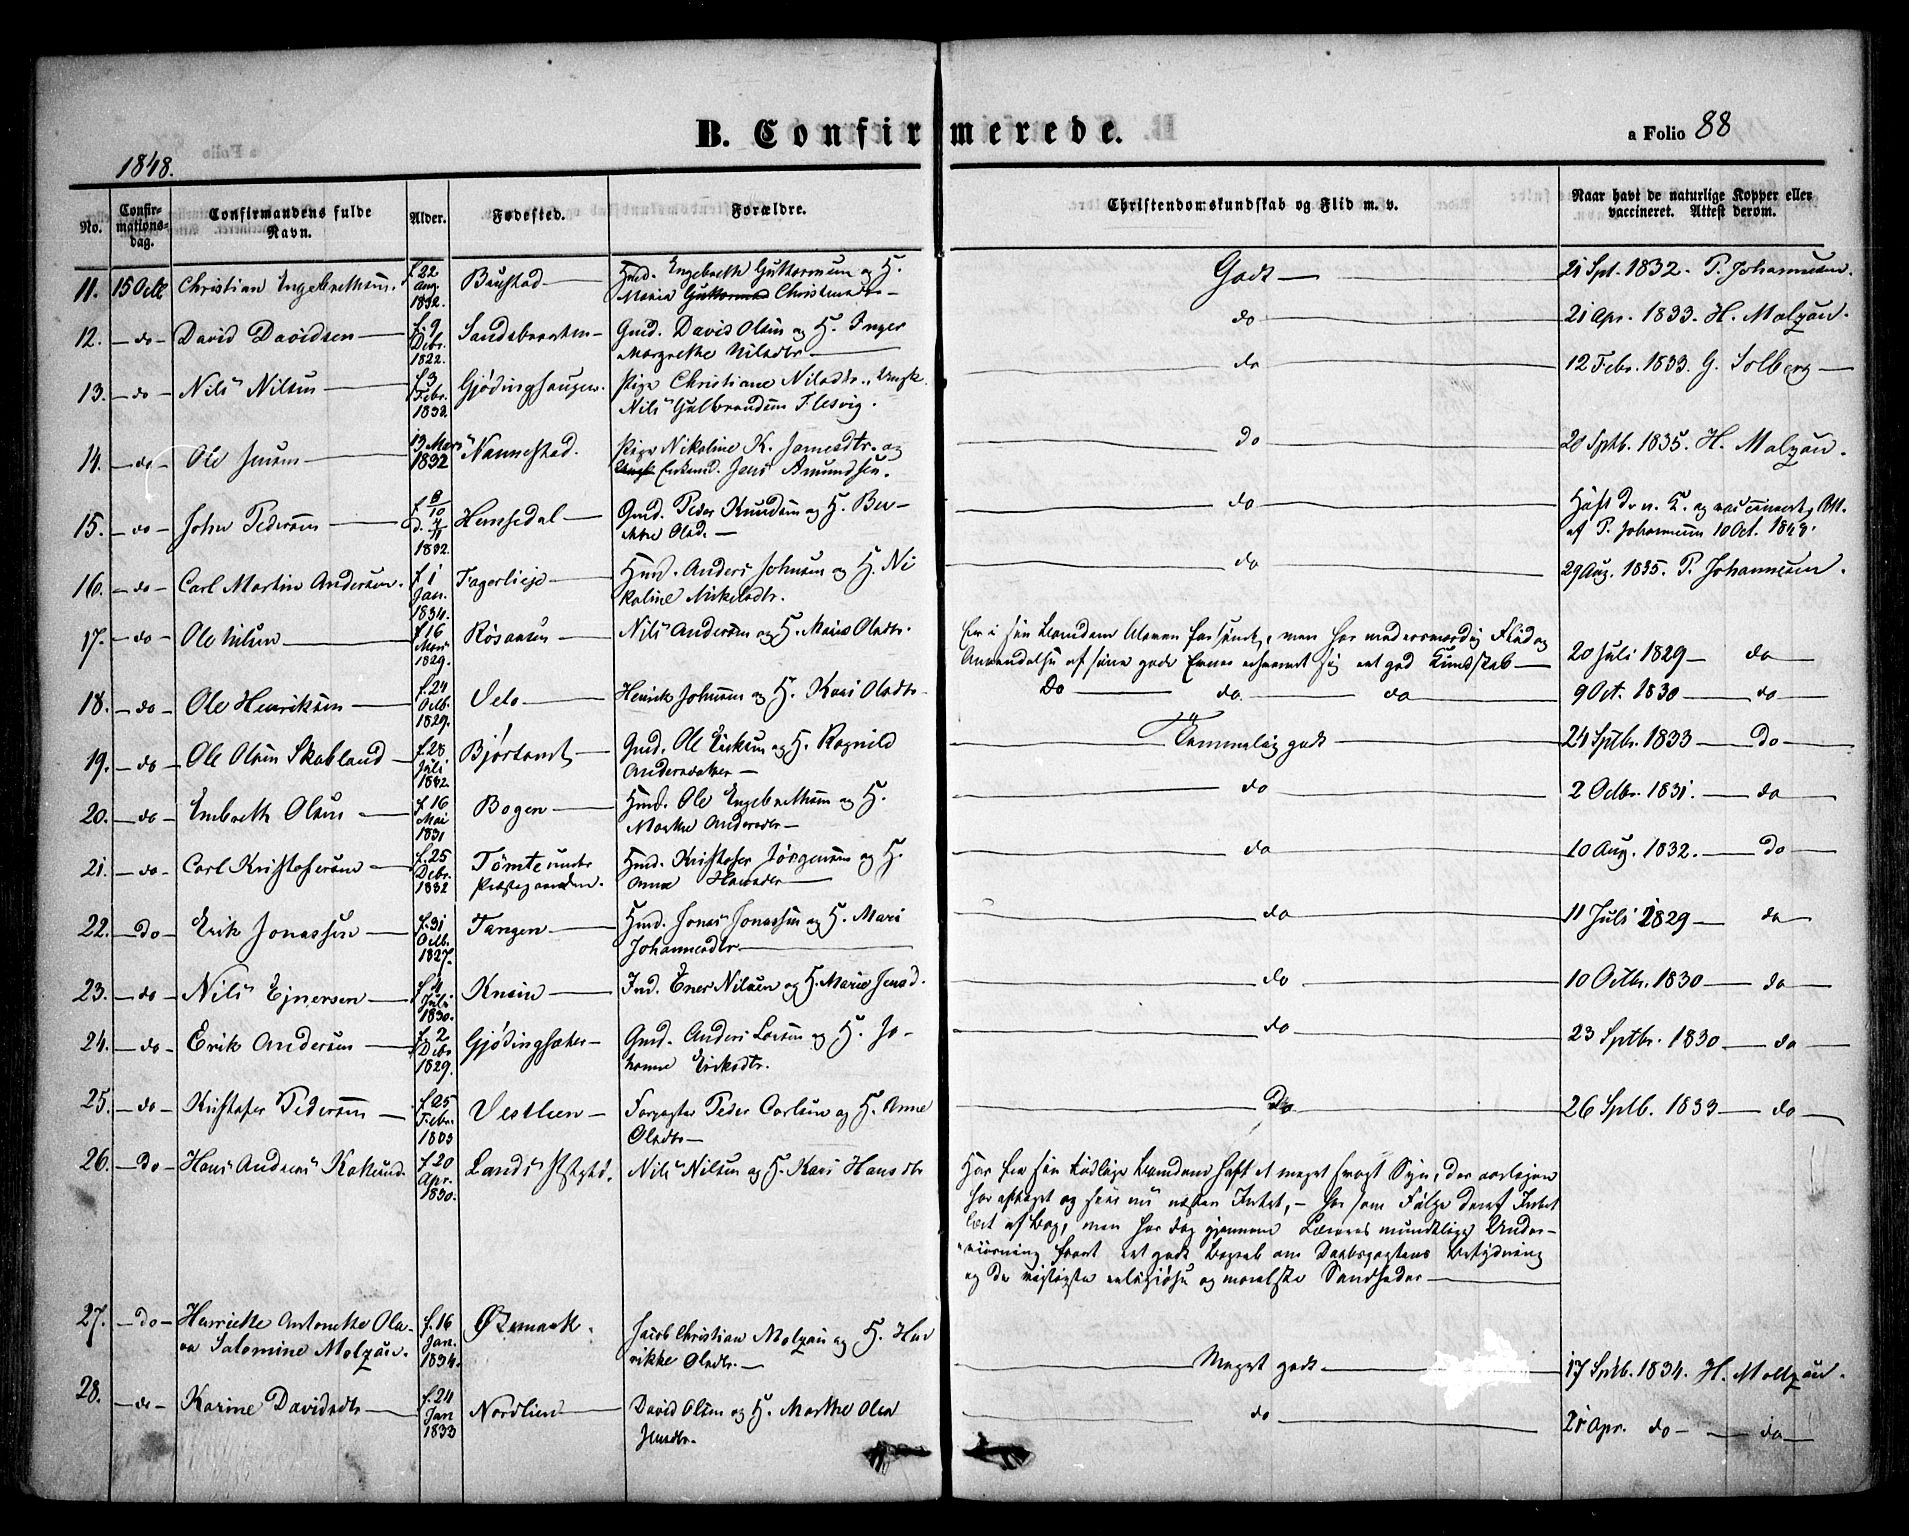 B. Confirmerede.
a Folio 88
1848.
No. Confirmationsdag. Confirmandens fulde Navn. Alder. Fødested. Forældre. Christendomskundskab og Flid m. v. Naar havt de naturlige Kopper eller vaccineret. Attest derom.
11. 15 Octb Christian Engebrethsen. f. 22 Aug. 1832. Baustad Hmd. Engebreth Guttormsen og H. Godt 21 Spt. 1832. P. Johannesen.
Maria Christensdtr
12. do David Davidsen f. 9 Debr. 1822. Gmd. David Olsen og H. Inger do 21 Apr. 1833. H. Molzau.
Margrethe Nilsdtr
13. do Nils Nilsen f. 3 Febr. 1832. Gjødinghaugen Pige Christiane Nilsdtr., Ungk. do 12 Febr. 1833. G. Solberg
Nils Gulbrandsen Flesvig.
14. do Ole Jensen 13 Mars 1832 Nannestad. Pige Nikoline K. og do 28 Sptb. 1835. H. Molzau.
Enkemd. Jens Amundsen.
15. do John Pedersen f. 8/10 d. 4/11 1832. Hemsedal Gmd. Peder Knudsen og H. do Haft d. n. K. og vaccineret, Att.
Olsd. af P. Johannesen 10 Oct. 1848.
16. do Carl Martin Andersen. f. 1 Jan. 1834. Fagerlieje Hmd. Anders Johnsen og H. Ni do 29 Aug. 1835. P. Johannesen.
koline
17. do Ole Nilsen f. 16 Mars 1829. Røsaasen Nils Andersen og H. Mari Olsdtr. Er i sin Barndom bleven forsømt, men har ved Flid og
Anvendelse af sine gode Evner erhvervet sig ret god Kundskab 20 Juli 1829 do
18. do Ole Henriksen f. 24 Octb. 1829. Velo Henrik Johnsen og H. Kari Olsdtr. Do do do 9 Oct. 1830 do
19. do Ole Olsen Skabland f. 28 Juli 1832. Gmd. Ole Eriksen og H. Ragnild Temmelig godt 24 Sptbr. 1833 Do
Andersdatter
20. do Embreth Olsen f. 16 Mai 1831 Bogen Hmd. Ole Engebrethsen og H. do 2 Octbr. 1831. do
Marthe Andersdtr
21. do Carl Kristofersen f. 25 Debr. 1832 Tømte under Præstegaarden. Hmd. Kristofer Jørgensen og H. do 10 Aug. 1832. Do
Anne Hansdtr
22. Do Erik Jonassen f. 31 Octb. 1827. Tangen Hmd. Jonas Jonassen og H. Mari do 11 Juli 1829 do
Johannesdtr
23. do Nils Ejnersen f. 4 Juli 1830. Knain Ind. Ener Nilsen og H. Marie Jensd. do 10 Octbr. 1830 do
24. do Erik Andersen f. 2 Debr 1829. Gjødingsæter Gmd. Anders Larsen og H. Jo- do 23 Sptbr. 1830 do
hanne Eriksdtr.
25. do Kristofer Pedersen f. 25 Febr. 1833 Vestlien Forpagter Peder Carlsen og H. Anne Do 26 Sptb. 1833 do
Olsdtr
26. Do Hans Andreas f. 20 Apr. 1830. Lands Prstgjd. Nils Nilsen og H. Kari Hansdtr Har fra sin tidlige Barndom haft et meget svagt Syn, der aarligen
har aftaget og sees nu næsten Intet, – har som Følge deraf Intet
lært af Bog, men har dog gjennem Lærerens mundtlige Under-
viisning faaet ret godt Begreb om Daabspagtens Betydning
og de vigtigste religiøse og moralske Sandheder
27. Do Henriette Antonette Ola- f. 16 Jan. 1834. Østmark. Jacob Christian Molzau og H. Hen
va Salomine Molzau. rikke Olsdtr. Meget godt 17 Sptb. 1834. H. Molzau.
28. do Karine Davidsdtr f. 24 Jan 1833 Nordlien David Olsen og H. Marthe Olea do 21 Apr. do do
Jensdtr.